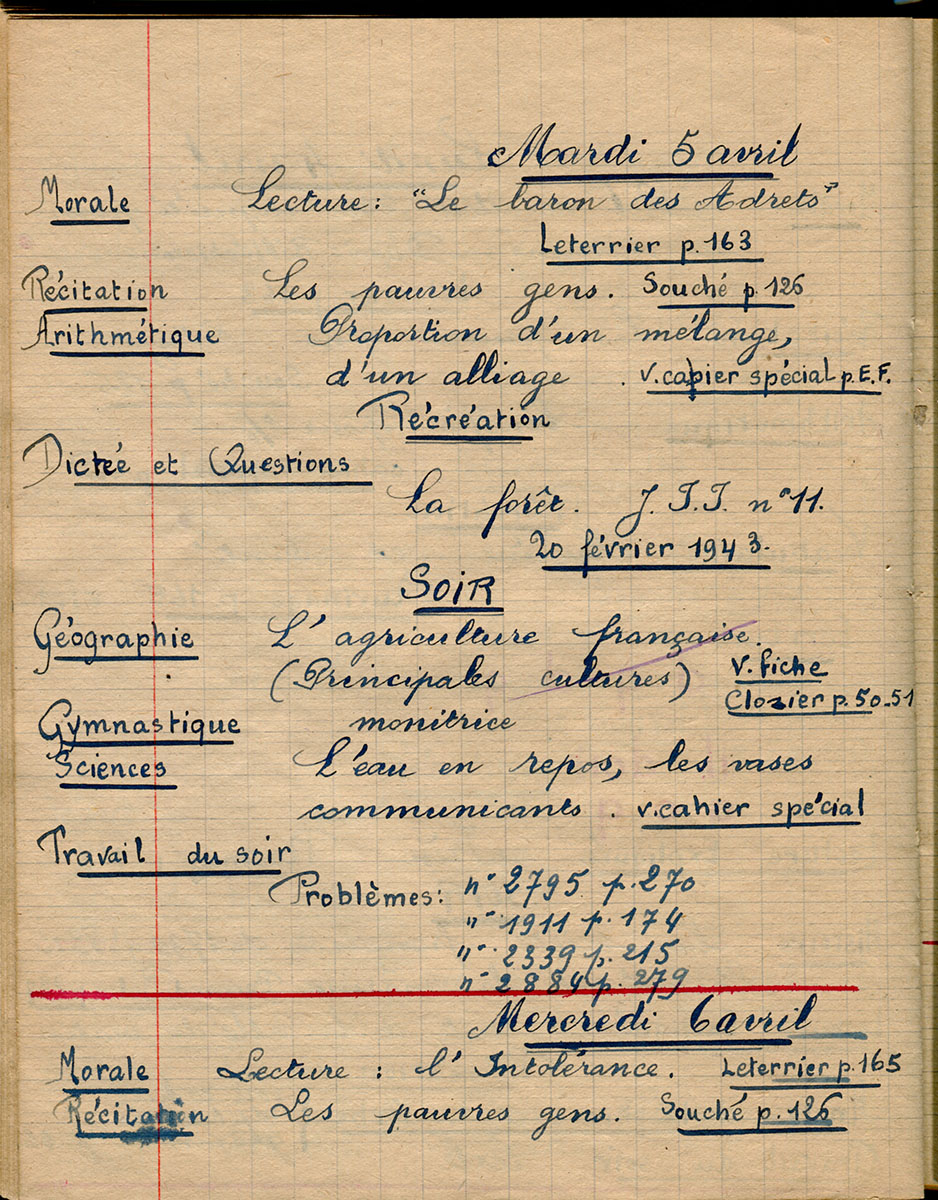 Mardi 5 avril
Morale Lecture : "Le baron des Adrets"
Leterrier p.163
Récitation Les pauvres gens. Souché p.126
Arithmétique Proportion d'un mélange,
d'un alliage . v.cahier spécial p.E.F.
Récréation
Dictée et Questions
La forêt. J.I.I. n°11.
20 février 1943.
SOIR
Géographie L'agriculture française.
(Principales cultures) v. fiche
Clozier p.50-51
Gymnastique monitrice
Sciences L'eau en repos, les vases
communicants . v.cahier spécial
Travail du soir
Problèmes : n° 2795 p.270
"° 1911 p.174
"° 2339 p.215
n° 2884 p.279
Mercredi 6 avril
Morale Lecture : l'Intolérance. Leterrier p.165
Récitation Les pauvres gens. Souché p.126